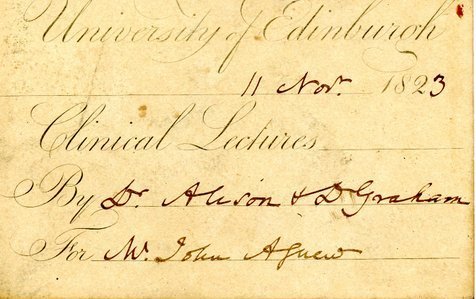 University of Edinburgh
11 Novr. 1823
Clinical Lectures
By Dr. Alison & D Graham
For Mr. John Agnew